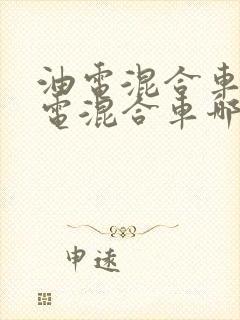 油電混合車
電混合車哪
申遠